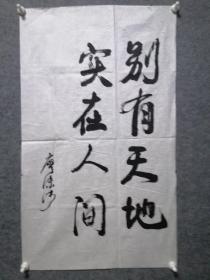 别有天地
实在人间
廖沫沙